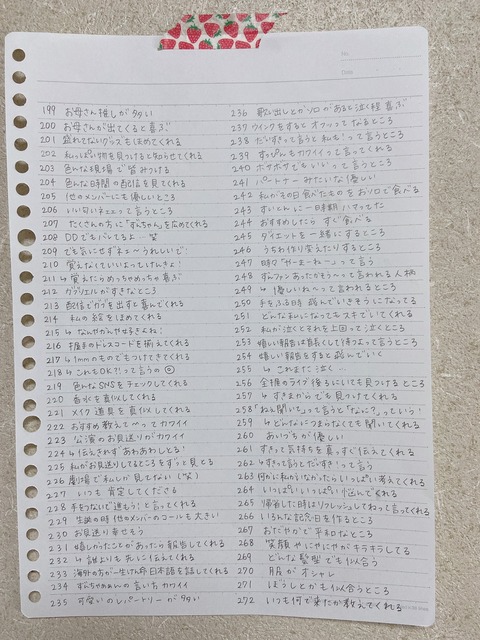 199 お母さん推しが多い
200 お母さんが出てくると喜ぶ
201 盛れてないグラスをほめてくれる
202 私っぽい物を見つけると知らせてくれる
203 色んな現場で皆みつける
204 色んな時間の配信を見てくれる
205 他のメンバーにも優しいところ
206 いい匂いネェって言うところ
207 たくさんの方に「ずんちゃん」を広めてくれる
208 DDでもバレてるよー笑
209 でも気にせずネェ〜うれしいで
210 覚えなくていいよってしたんきょ!
211 ↳覚えたらめっちゃめっちゃ喜ぶ
212 ガブリエルがすきなところ
213 配信でガブを出すと喜んでくれる
214 私の絵をほめてくれる
215 ↳なんやかんやせるきよね!
216 握手のドレスコードを揃えてくれる
217 ↳1mmのものでもつけてきてくれる
218 ↳これもOK?!って言うの◎
219 色んなSNSをチェックしてくれる
220 香水を真似してくれる
221 メイク道具を真似してくれる
222 おすすめ教えて〜ってカワイイ
223 公演のお見送りがカワイイ
224 ↳伝えきれずあわあわしとる!
225 私がお見送りしてるところをずっと見とる
226 劇場で私しか見てない(笑)
227 いつも肯定してくださる
228 手をつないで進もう!と言ってくれる
229 生誕の時他のメンバーのコールも大きい
230 お見送り幸せそう
231 嬉しかったことがあったら報告してくれる
232 ↳誰よりも先に伝えてくれる
233 海外の方が一生けん命日本語を話してくれる
234 ずんちゃめんの言い方カワイイ
235 可愛いのレパートリーが多い
236 歌い出しとかソロがあると泣く程喜ぶ
237 ウインクをするとオフッってなるところ
238 だいすきって言うと私も!って言うところ
239 すっぴんもカワイイって言ってくれる
240 ボサボサでもいいって言うところ
241 パートナーみたいな優しい
242 私がその日食べたものをおソロで食べる
243 すいとんに一日時期ハマってた
244 おすすめしたらすぐ食べる
245 ダイエットを一緒にするところ
246 うちわ作り変えたりするところ
247 時々「やーまーねー」って言う
248 ずんファンあったかそ〜って言われる人柄
249 ↳優しいね〜って言われるところ
250 手をふる時跳んでいきそうになってる
251 どんな私になってもスキでいてくれる
252 私が泣くとそれを上回って泣くところ
253 嬉しい報告は首長くして待つよって言うところ
254 嬉しい報告をすると跳んでいく
255 ↳これまた泣く…
256 全推のライブ後ろにいても見つけるところ
257 ↳すきまからでも見つけてくれる
258 「ねえ聞いても」って言うと「なに?」っていう!
259 ↳どんなにつまらなくても聞いてくれる
260 あいづちが優しい
261 すきって気持ちを真っすぐ伝えてくれる
262 ↳すきって言うとだいすき!って言う
263 何かに私がいなかったらいっぱい考えてくれる
264 いっぱいいっぱい悩んでくれる
265 帰省した時はリフレッシュしてねって言ってくれる
266 いろんな記念日を作るところ
267 おだやかで平和なところ
268 笑顔やにやにやがキラキラしてる
269 どんな髪型でも似合う
270 服がオシャレ
271 ぼうしとかも似合うところ
272 いつも何で来たか教えてくれる